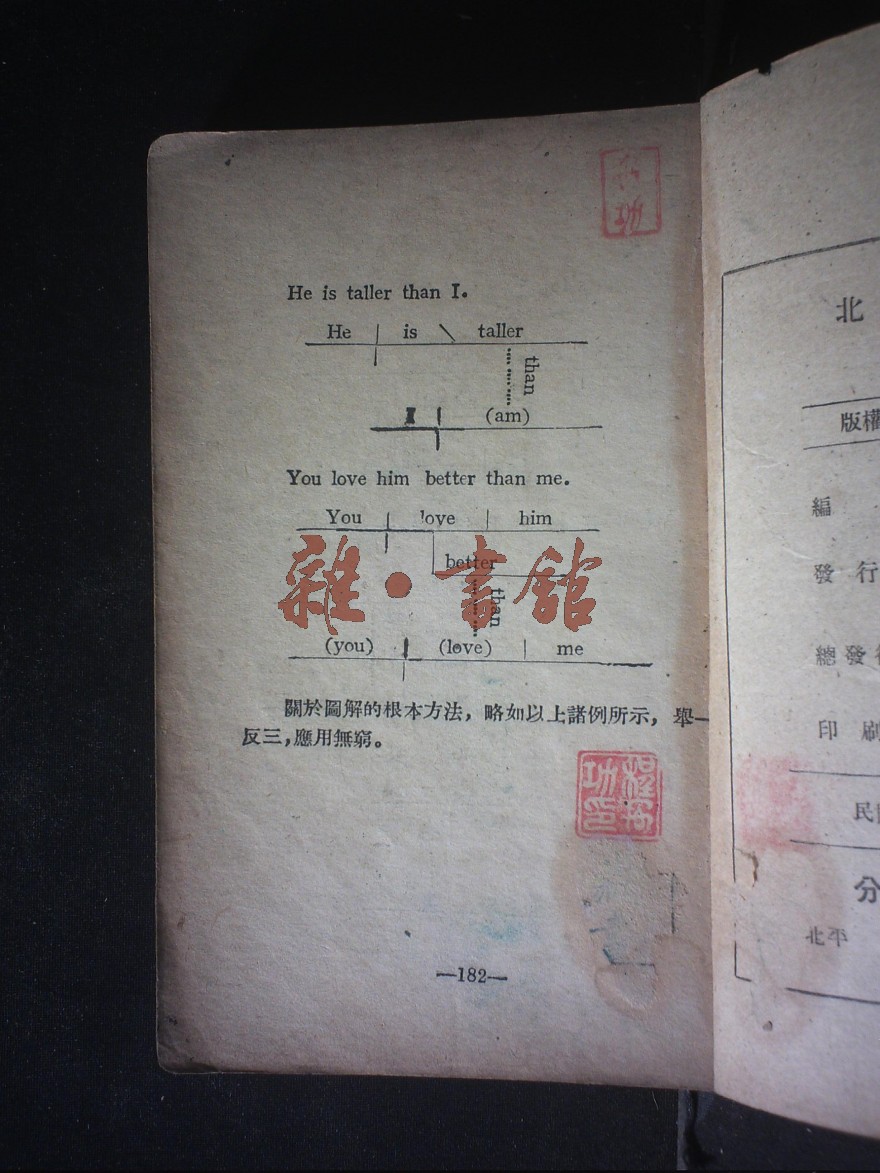 He is taller than I.
He is taller
than
I (am)
You love him better than me.
You love him
better
than
(you) (love) me
雜·書館
關於圖解的根本方法，略如以上諸例所示，舉一
反三，應用無窮。
—182—
北
版權
編
發行
總發行
印刷
民國
分
北平